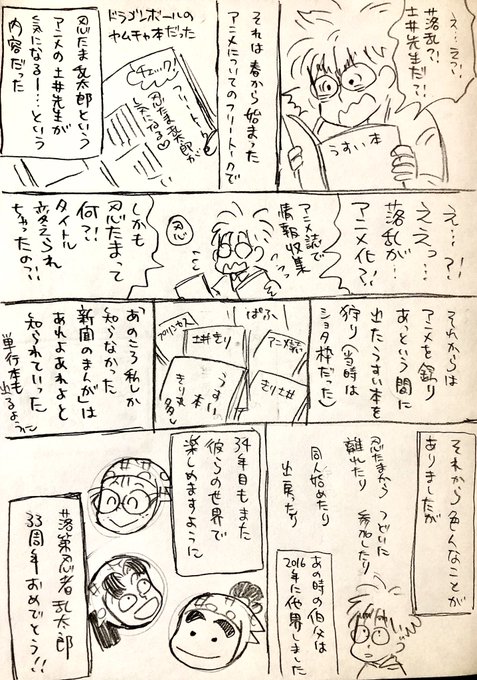 え…えっ!?
落乱!?
土井先生だ?!
うすい本
それは春から始まった
アニメについてのフリートークで
ドラゴンボールの
ヤムチャ本だった
チェック!
フリートーク
忍たま乱太郎が
気になる♡
忍たま乱太郎という
アニメの土井先生が
気になるー…という
内容だった
え…?!
ええっ…
落乱が…
アニメ化?!
アニメ誌で
情報収集
忍
しかも
忍たまって
何?!
タイトル
変えられ
ちゃったの?!
それからは
アニメを録り
あっという間に
出たうすい本を
狩り(当時は
ショタ枠だった)
ぱふ
アニメ誌
きり土井
土井きり
うすい
本
きり丸
多し
あのころ私しか
知らなかった
新聞のまんがは
あれよあれよと
知られていった
単行本も
出るように
それから色んなことが
ありましたが
忍たまから
離れたり
つどいに
参加したり
同人始めたり
出戻ったり
あの時の伯父は
2016
年に他界しました
34年目もまた
彼らの世界で
楽しめますように
#落第忍者乱太郎
33周年おめでとう!!